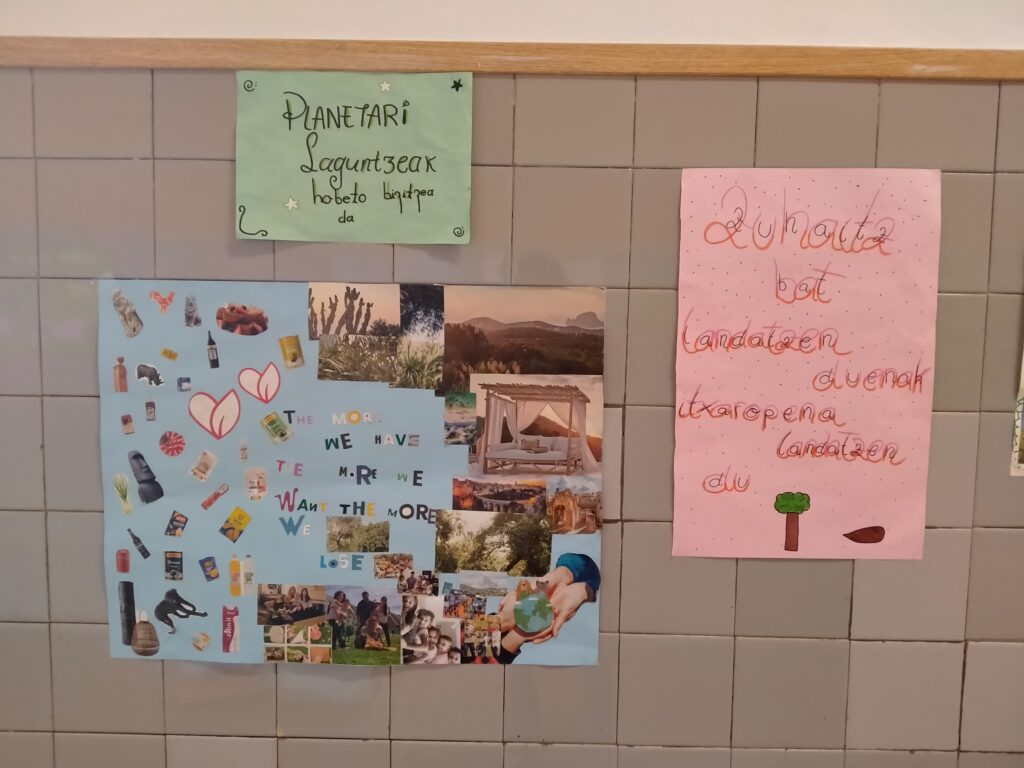 PLANETARi
Laguntzeak
hobeto bizitzea
da
THE MORE
WE HAVE
THE MORE WE
WANT THE MORE
WE
LOSE
Zuhaitz
bat
landatzen
duenak
itxaropena
landatzen
du